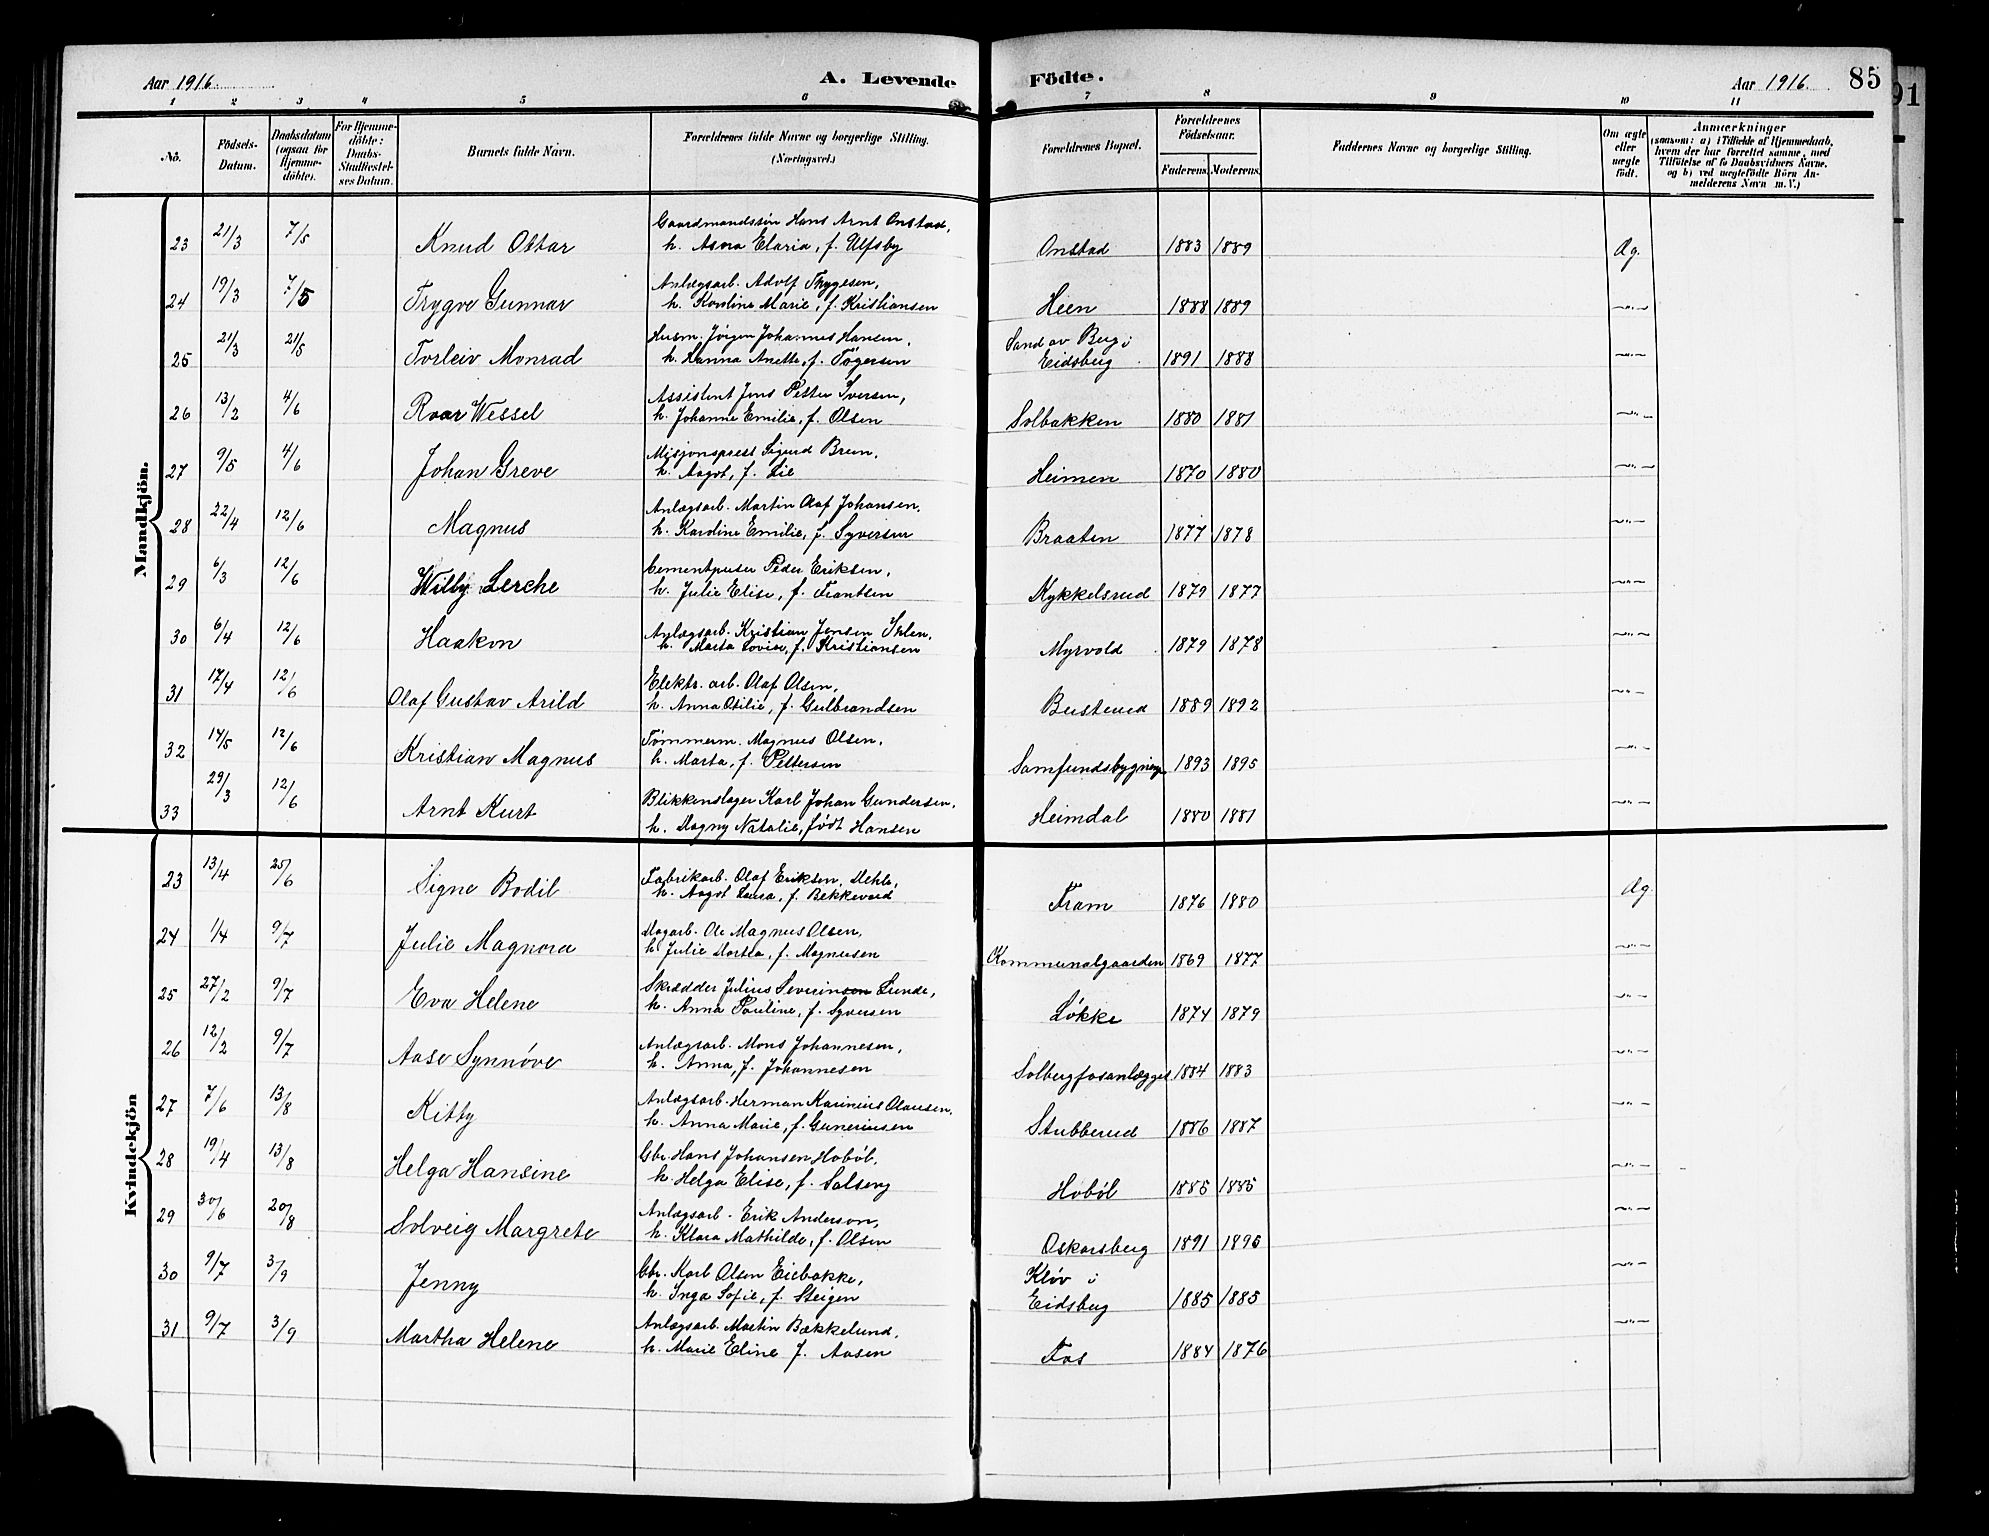 Aar 1916. A. Levende Födte. Aar 1916. 85
91
1 2 3 4 5 6 7 8 9 10 11
No. Födsels-Datum. Daabsdatum (ogsaa for Hjemmedöbte). For Hjemmedöbte: Daabs-Stadfæstelses Datum. Barnets fulde Navn. Forældrenes fulde Navne og borgerlige Stilling. (Næringsvei.) Forældrenes Bopæl. Forældrenes Födselsaar. Faderens. Moderens. Faddernes Navne og borgerlige Stilling. Om ægte eller uægte födt. Anmærkninger (saasom: a) i Tilfælde af Hjemmedaab, hvem der har forrettet samme, med Tilföielse af to Daabsvidners Navne, og b) ved uægtefödte Börn Anmelderens Navn m. V.)
Mandkjön.
23 21/3 7/5 Knud Ottar Gaardmandssön Hans Arnt Onstad,
h. Asora Elaria, f. Ulfsby Onstad 1883 1889 Æg.
24 19/3 7/5 Trygve Gunnar Anlægsarb. Adolf Thygesen,
h. Karoline Marie, f. Kristiansen Heen 1888 1889 –"–
25 21/3 21/5 Torleiv Monrad Husm. Jörgen Johannes Hansen,
h. Hanna Anette, f. Tögersen Sand av Berg i
Eidsberg 1891 1888 –"–
26 13/2 4/6 Roar Wessel Assistent Jens Petter Iversen,
h. Johanne Emilie, f. Olsen Solbakken 1880 1881 –"–
27 9/5 4/6 Johan Greve Misjonsprest Sigurd Bruun,
h. Aagot, f. Lie Heimen 1870 1880 –"–
28 22/4 12/6 Magnus Anlægsarb. Martin Olaf Johansen,
h. Karoline Emilie, f. Syversen Braaten 1877 1878 –"–
29 6/3 12/6 Willy Lerche Cementpusser Peder Eriksen,
h. Julie Elise, f. Frantsen Kykkelsrud 1879 1877 –"–
30 6/4 12/6 Haakon Anlægsarb. Kristian Jensen Ihlen,
h. Marta Lovise, f. Kristiansen Myrvold 1879 1878 –"–
31 17/4 12/6 Olaf Gustav Arild Elektr. arb. Olaf Olsen,
h. Anna Otilie, f. Gulbrandsen Busterud 1889 1892 –"–
32 14/5 12/6 Kristian Magnus Tømmerm. Magnus Olsen,
h. Marta, f. Pettersen Samfundsbygning 1893 1895 –"–
33 29/3 12/6 Arnt Kurt Blikkenslager Karl Johan Gundersen,
h. Dagny Natalie, født Hansen Heimdal 1880 1881 –"–
Kvindekjön
23 13/4 25/6 Signe Bodil Fabrikarb. Olaf Eriksen Mehle,
h. Aagot Laura, f. Bekkevard Fram 1876 1880 Æg.
24 1/4 9/7 Julie Magnora Dagarb. Ole Magnus Olsen,
h. Julie Dortea, f. Magnusen Kommunalgaarden 1869 1877 –"–
25 27/2 9/7 Eva Helene Skrædder Julius Severinsen Lunde,
h. Anna Pauline, f. Syversen Løkke 1874 1879 –"–
26 12/2 9/7 Aase Synnöve Anlægsarb. Mons Johannesen,
h. Anna, f. Johannesen Solbergfosanlægget 1884 1883 –"–
27 7/6 13/8 Kitty Anlægsarb. Herman Karinius Olausen,
h. Anna Marie, f. Guneriusen Stubberud 1886 1887 –"–
28 19/4 13/8 Helga Hansine Gbr. Hans Johansen Hobøl,
h. Helga Elise, f. Solberg Hobøl 1885 1885 –"–
29 30/6 20/8 Solveig Margrete Anlægsarb. Erik Anderson,
h. Klara Mathilde, f. Olsen Oskarsberg 1891 1895 –"–
30 9/7 3/9 Jenny Gbr. Karl Olsen Eiebakke,
h. Inga Sofie, f. Steigen Kløv i
Eidsberg 1885 1885 –"–
31 9/7 3/9 Martha Helene Anlægsarb. Martin Bækkelund,
h. Marie Eline f. Aasen Fos 1884 1876 –"–